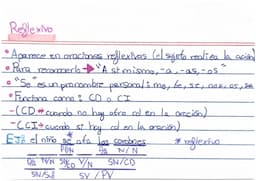 Reflexivo
• Aparece en oraciones reflexivas (el sujeto realiza la acción)
• Para reconocerlo → "A sí mismo, -a, -as, -os"
• "Se" es un pronombre personal: me, te, se, nos, os, se
• Funciona como: CD o CI
-(CD → cuando no hay otro cd en la oración)
-(CI → cuando sí hay cd en la oración)
EJ: el niño se ata los cordones * reflexivo
PDN Da N/N
Da N/N SN/CI V/N SN/CD
SN/SUJ SV / PV